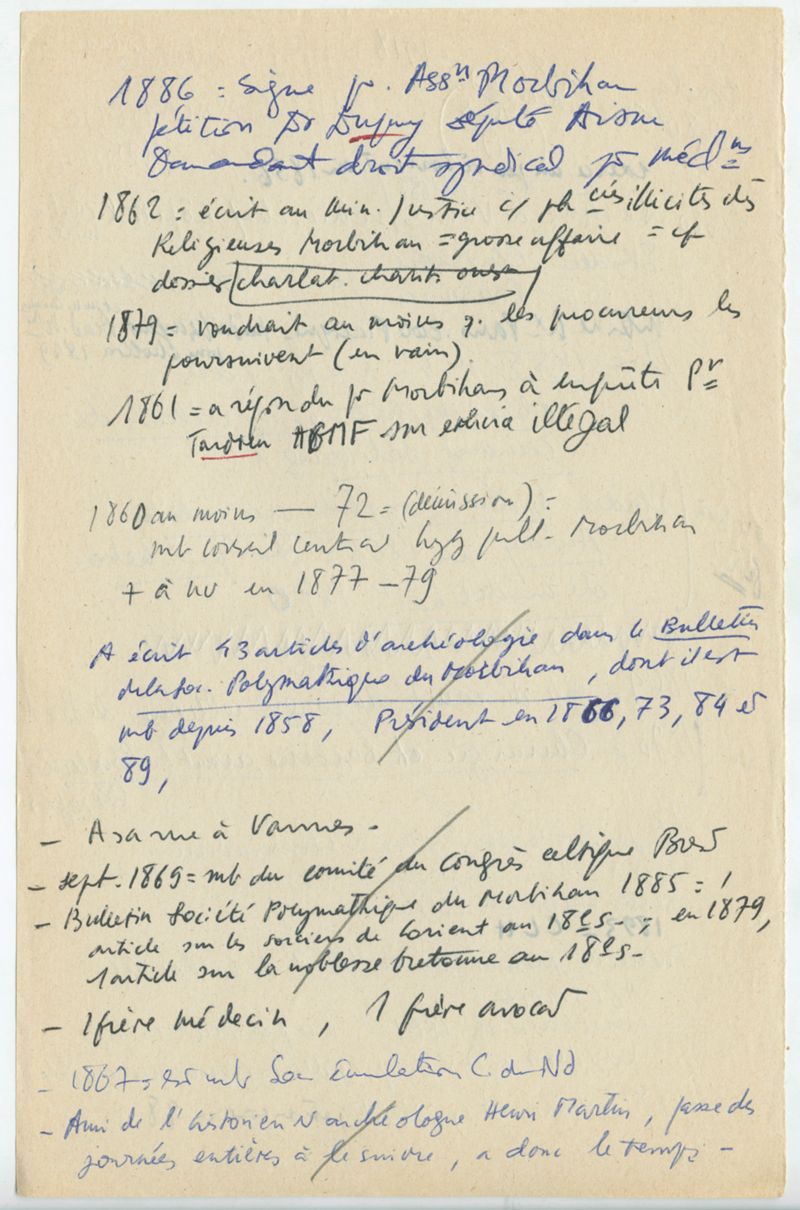 1886 = signe pr. Assn Morbihan
pétition Dr Dupuy député Aisne
Demandant droit syndical pr médns
1862 = écrit au Min. Justice c/ ph cies illicites des
Religieuses Morbihan = grosse affaire = cf
dossier charlat. charit. ouest
1879 = voudrait au moins q. les procureurs les
poursuivent (en vain).
1861 = a répondu pr Morbihan à enquête Pr
Tardieu AGMF sur exercice illégal
1860 au moins — 72 = (démission) =
mb Conseil central hyg publ. Morbihan
+ à nv en 1877 – 79
A écrit 43 articles d'archéologie dans le Bulletin
de la Soc. Polymathique du Morbihan, dont il est
mb depuis 1858, Président en 1866, 73, 84 et
89,
– A sa rue à Vannes –
– sept. 1869 = mb du comité du Congrès celtique Brest
– Bulletin Société Polymathique du Morbihan 1885 = 1
article sur les sorciers de Lorient au 18e s. – ; en 1879,
1 article sur la noblesse bretonne au 18e s –
– 1 frère médecin, 1 frère avocat
– 1867 = est mb Soc émulation C. du Nd
– Ami de l'historien N archéologue Henri Martin, passe des
journées entières à le suivre, a donc le temps –